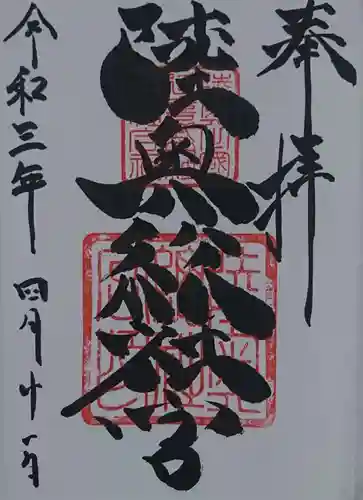 奉拝
陸奥総社宮
令和三年四月十一日